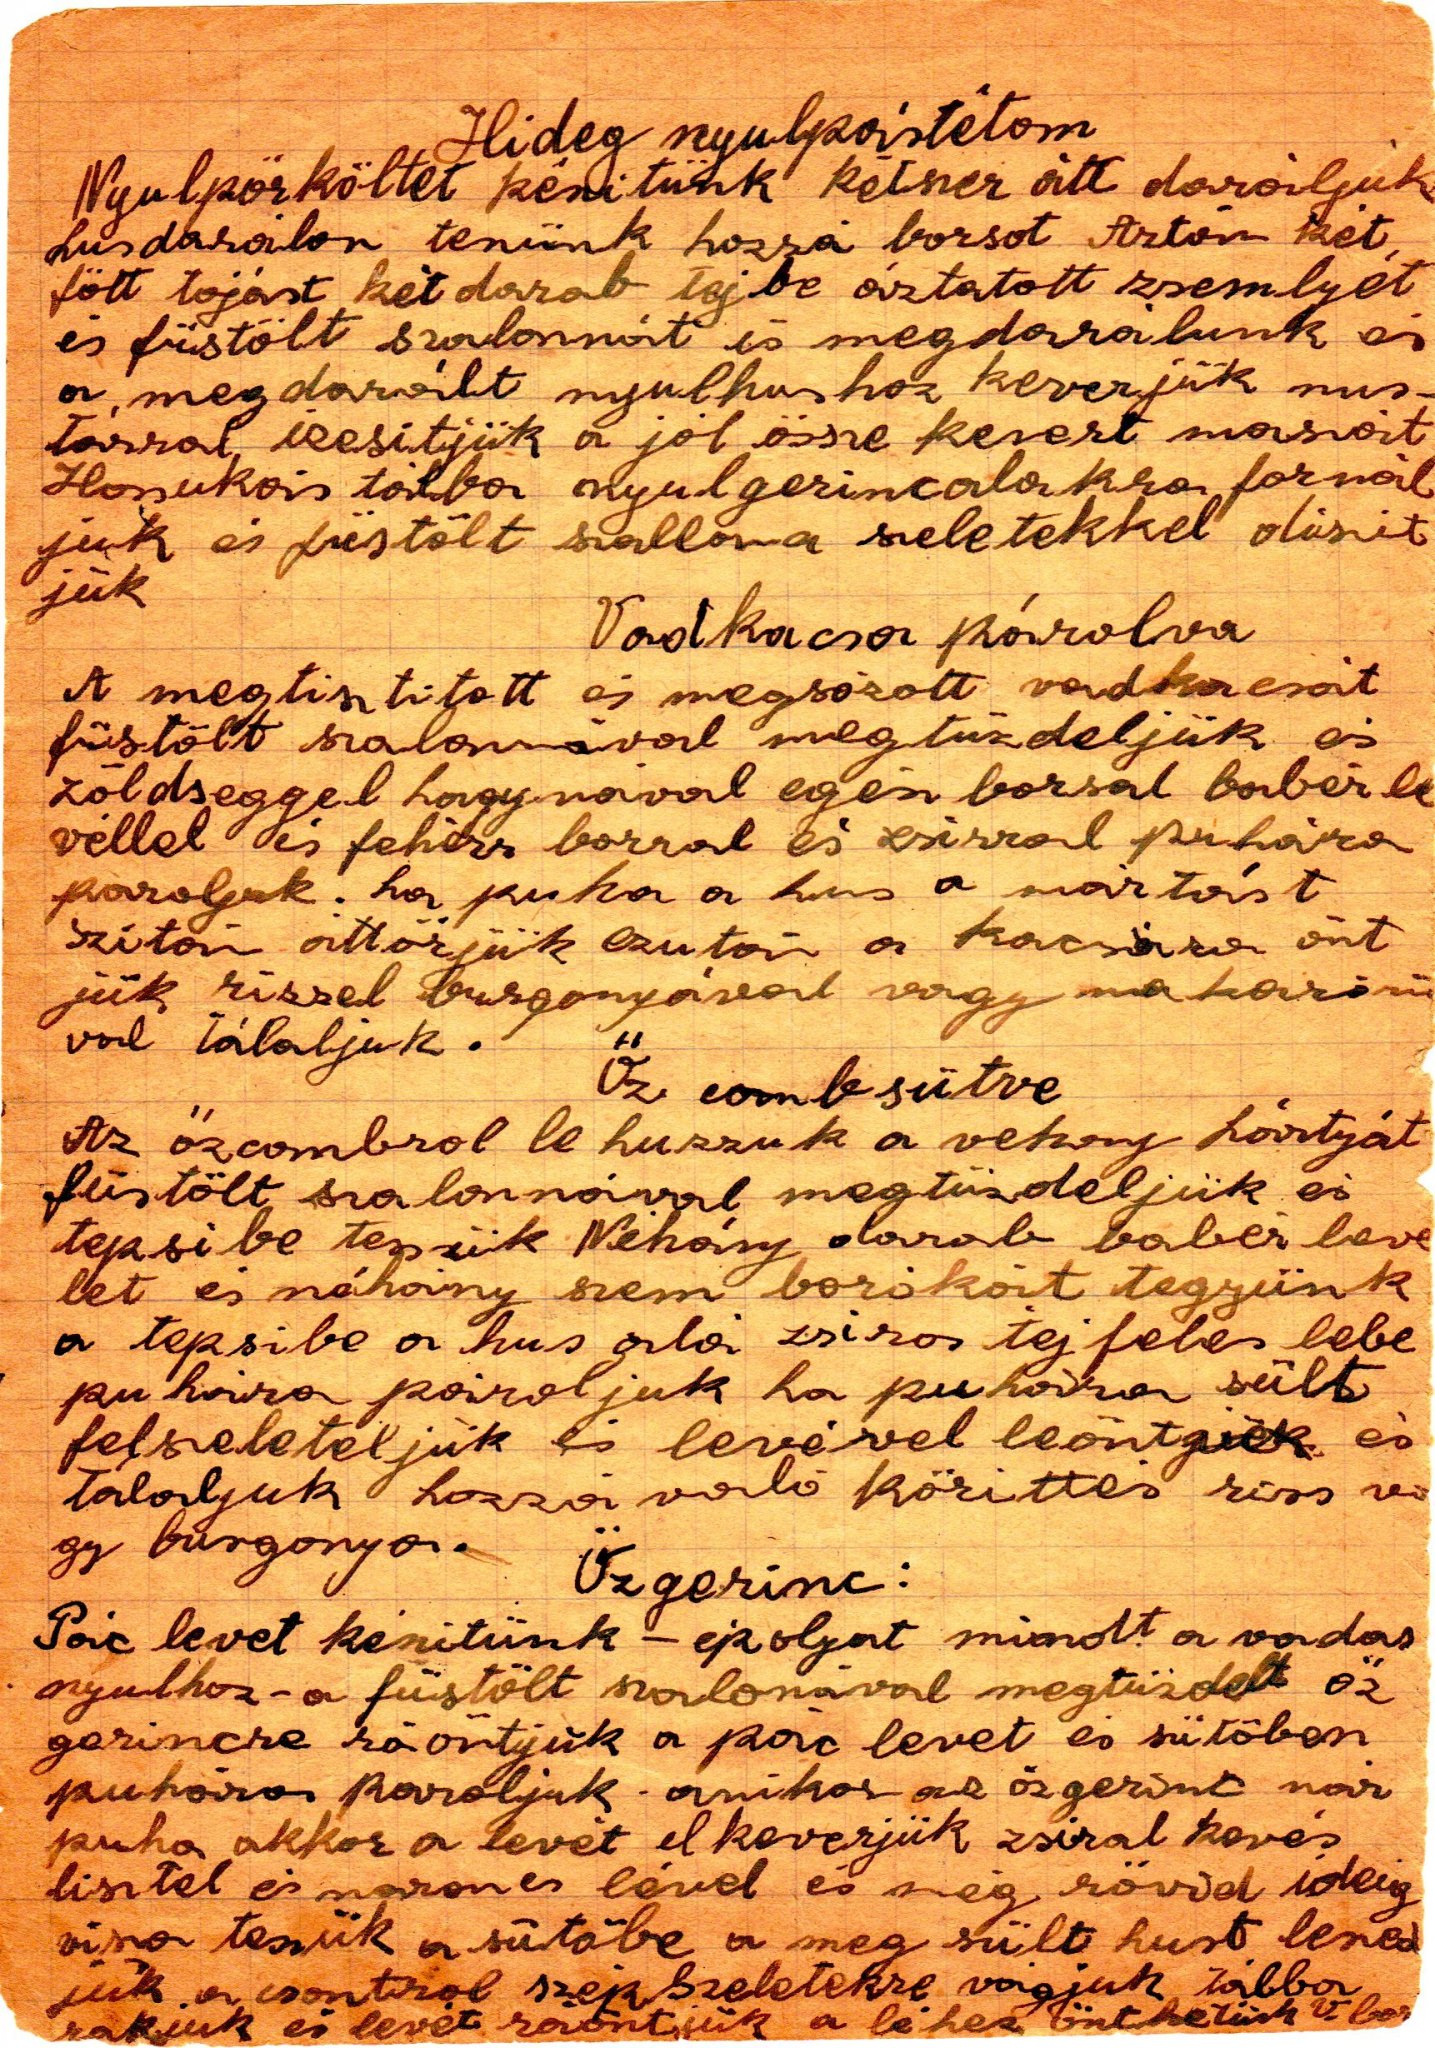 Hideg nyulpástétom
Nyulpörköltet készitünk kétszer átt daráljuk
husdarálon teszünk hozzá borsot Aztán két
főtt tojást két darab tejbe áztatott zsemlyét
és füstölt szalonnát is megdarálunk és
a megdarált nyulhushoz keverjük mus-
tárral izesitjük a jól össze kevert masszát
Hosszukás tálba nyulgerincalakra formál
juk és füstölt szallona szeletekkel diszit
jük
Vadkacsa párolva
A megtisztitott és megsózott vadkacsát
füstölt szalonnával megtüzdeljük és
zöldseggel hagymával egész borsal babér le
véllel és fehérr borral és zsirral puhára
pároljuk. ha puka a hus a mártást
szitán áttörjük ezután a kacsára önt
jük rizzsel burgonyával vagy makaróni
val tálaljuk.
Őz comb sütve
Az őzcombrol le huzzuk a vekony hártyát
füstölt szalonnával megtüzdeljük és
tepsibe tesszük Néhány darab babér leve
let és néhány szem borókát tegyünk
a tepsibe a hus alá zsiros tejfeles lébe
puhára pároljuk ha puhára sült
felszeleteljük és levével leöntjük és
tálaljuk hozzá való körittés riss va
gy burgonya.
Őzgerinc:
Pác levet készitünk – epolyat mindt a vadas
nyulhoz – a füstölt szalonával megtüzdelt őz
gerincre ráöntjük a pác levet és sütőben
puhára pároljuk - amikor az őzgerinc már
puha akkor a levét elkeverjük zsiral kevés
liszttel és narancs lével és még rövid ideig
vissza tesszük a sütőbe a meg sült hust leszed
jük a csontrol szép szeletekre vágjuk tálba
rakjuk és levét ráöntjük a léhez önthetünk v. bor